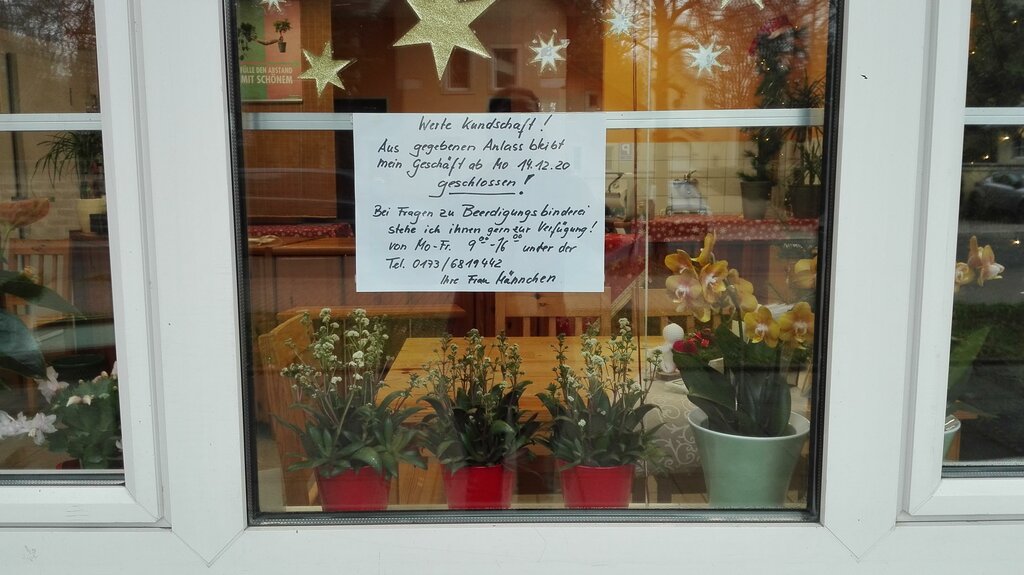 FÜLLE DEN ABSTAND
MIT SCHÖNEM
Werte Kundschaft!
Aus gegebenen Anlass bleibt
mein Geschäft ab Mo 14.12.20
geschlossen!
Bei Fragen zu Beerdigungsbinderei
stehe ich ihnen gern zur Verfügung!
von Mo-Fr. 9⁰⁰-16⁰⁰ unter der
Tel. 0173/6819442
Ihre Frau Männchen